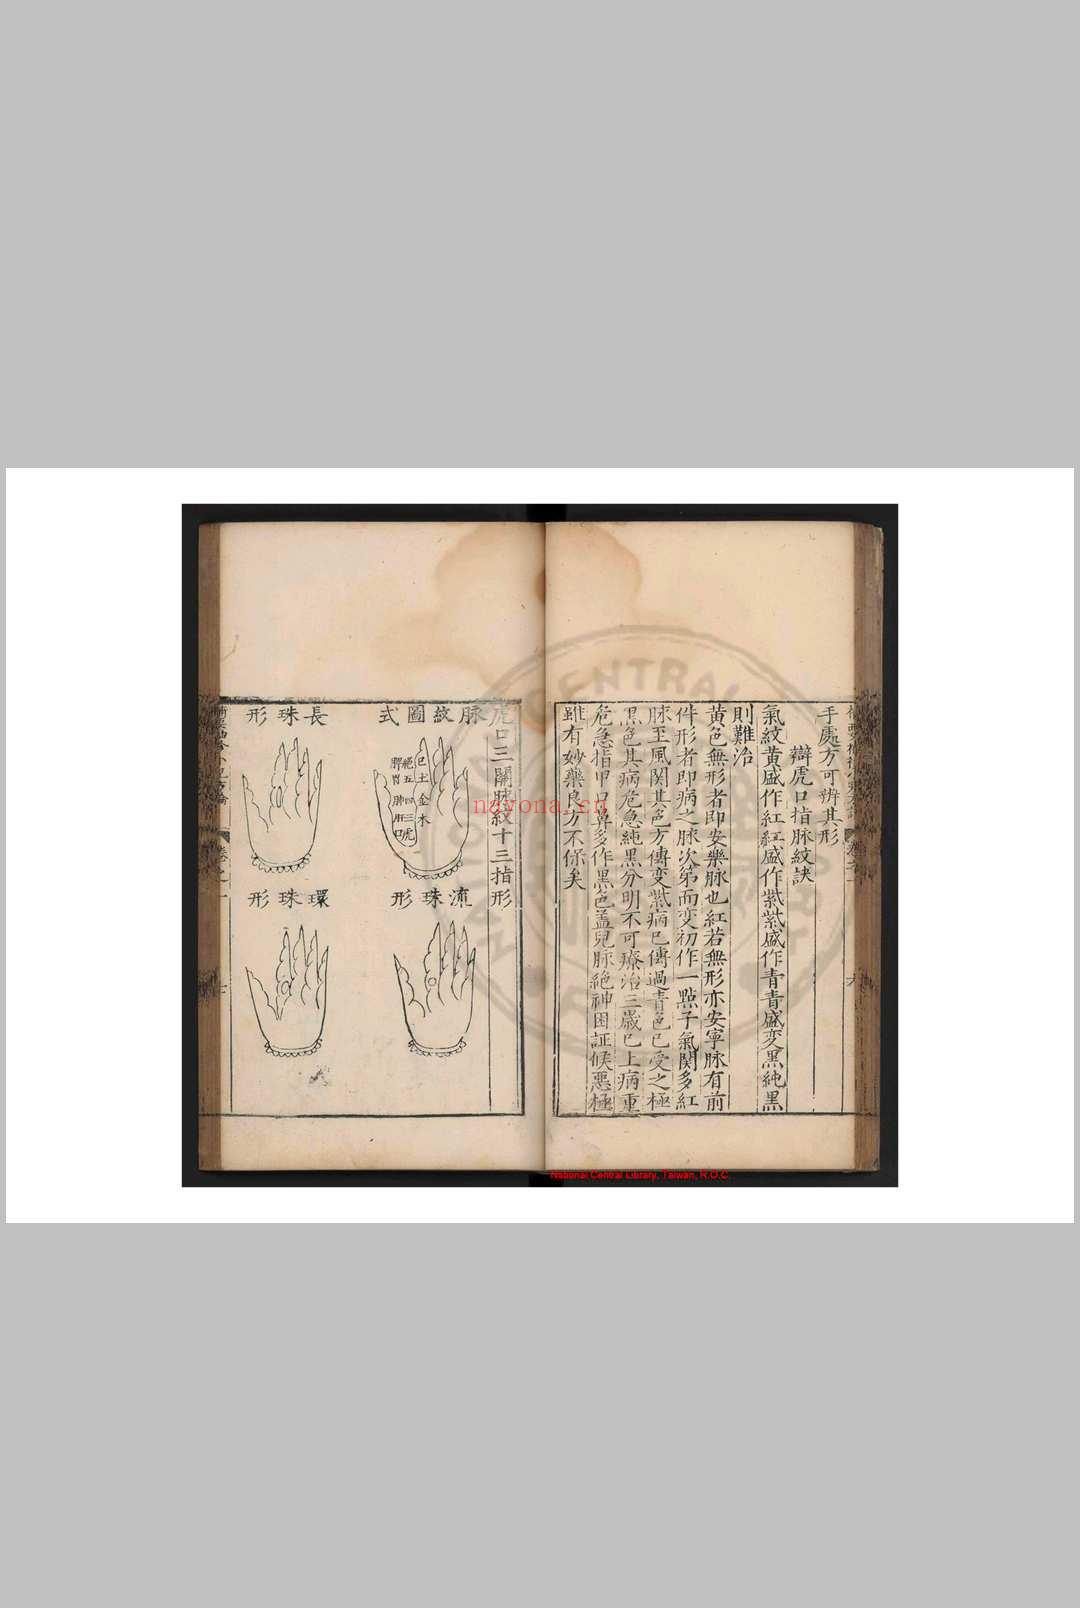 手處方可辨其形
辯虎口指脉紋訣
氣紋黃盛作紅紅盛作紫紫盛作青青盛变黑純黑
則難治
黃色無形者即安樂脉也紅若無形亦安寧脉有前
件形者即病之脉次第而变初作一點子氣関多紅
脉至風関其色方傳变紫病已傳過青色已受之極
黑色其病危急純黑分明不可療治三歲已上病重
危急指甲口鼻多作黑色盖兒脉絶神困証候惡極
雖有妙藥良方不保矣
虎口三關脉紋十三指形
脉紋圖式
流珠形
長珠形
環珠形
土
金
木
三
虎
口
NATIONAL CENTRAL
nayona.cn
National Central Library, Taiwan, R.O.C.